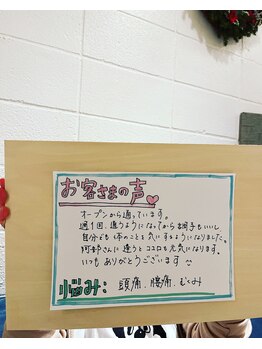 お客さまの声
オープンから通っています。
週1回、通うようになってから調子もいいし、
自分でも体のことを気にするようになりました。
阿部さんに逢うとココロも元気になります。
いつもありがとうございます
悩み: 頭痛、腰痛、むくみ